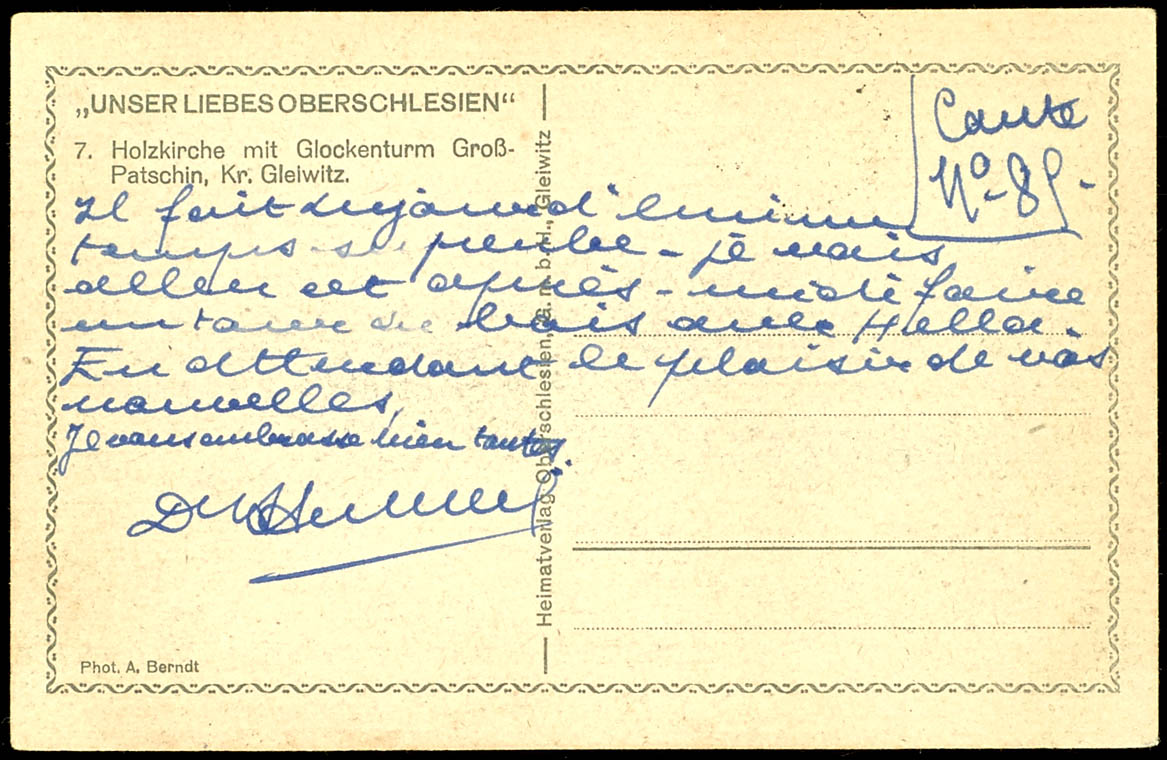 „UNSER LIEBES OBERSCHLESIEN“
7. Holzkirche mit Glockenturm Groß-
Patschin, Kr. Gleiwitz.
Carte
No-85-
Il fait aujourd'hui un
temps superbe - je vais
aller cet après-midi faire
un tour du bois avec Hella.
En attendant le plaisir de vos
nouvelles,
Je vous embrasse bien toutes
Heimatverlag Oberschlesien, G. m. b. H., Gleiwitz
Phot. A. Berndt